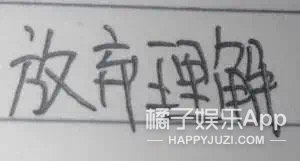 放弃理解
橘子娱乐App
HAPPYJUZI.COM